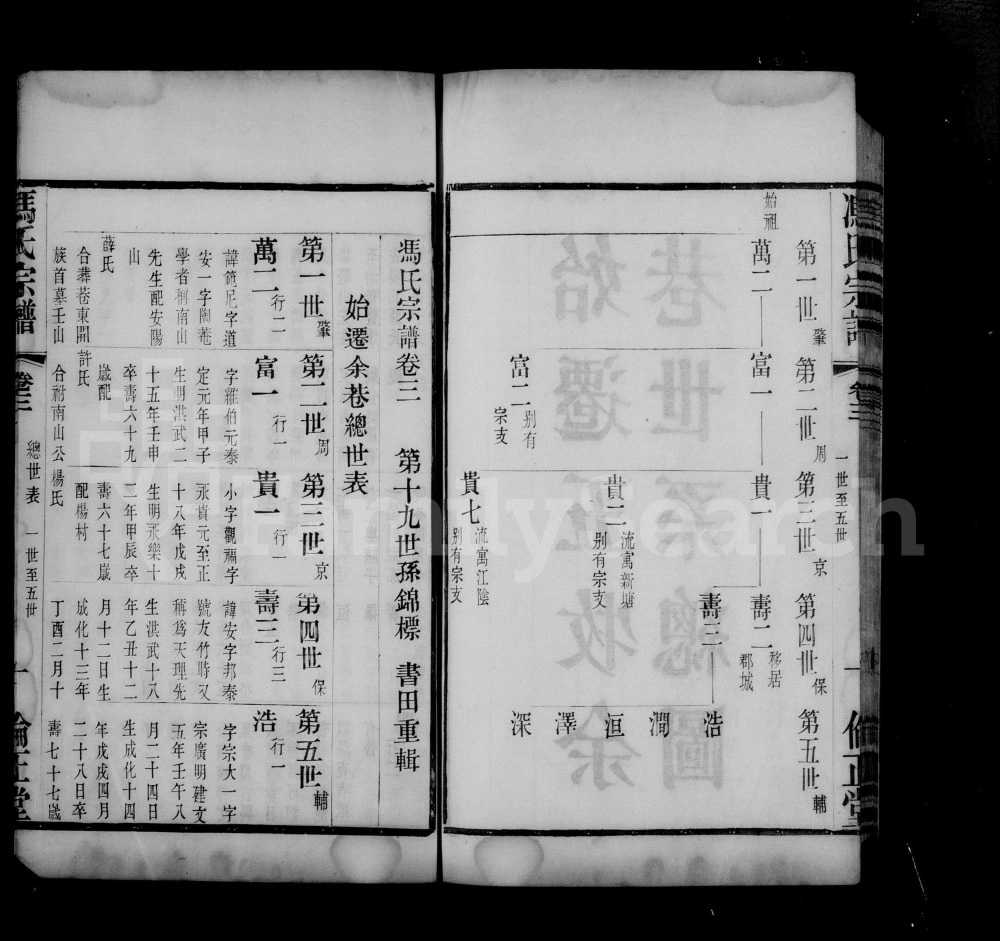 馮氏宗譜 卷三 一世至五世 一 倫正堂
第一世肇 第二世周 第三世京 第四世保 第五世輔
始祖
萬二 富一 貴一 壽二
移居
郡城
壽三 浩
澗
貴二
流寓新塘
别有宗支
洹
富二
别有
宗支
澤
深
貴七
流寓江陰
别有宗支
馮氏宗譜卷三 第十九世孫錦標 書田重輯
始遷余巷總世表
第一世肇 第二世周 第三世京 第四世保 第五世輔
萬二行二
諱範尼字道
安一字陶菴
學者稱南山
先生配安陽
山
薛氏
合葬巷東開
族首墓壬山
富一行一
字維伯元泰
定元年甲子
生明洪武二
十五年壬申
卒壽六十九
歲配
許氏
合祔南山公
貴一行一
小字觀福字
永貴元至正
十八年戊戌
生明永樂十
二年甲辰卒
壽六十七歲
配楊村
楊氏
壽三行三
諱安字邦泰
號友竹時又
稱爲天理先
生洪武十八
年乙丑十二
月十二日生
成化十三年
丁酉二月十
浩行一
字宗大一字
宗廣明建文
五年壬午八
月二十四日
生成化十四
年戊戌四月
二十八日卒
壽七十七歲
馮氏宗譜 卷三 總世表 一世至五世 一 倫正堂
FamilySearch